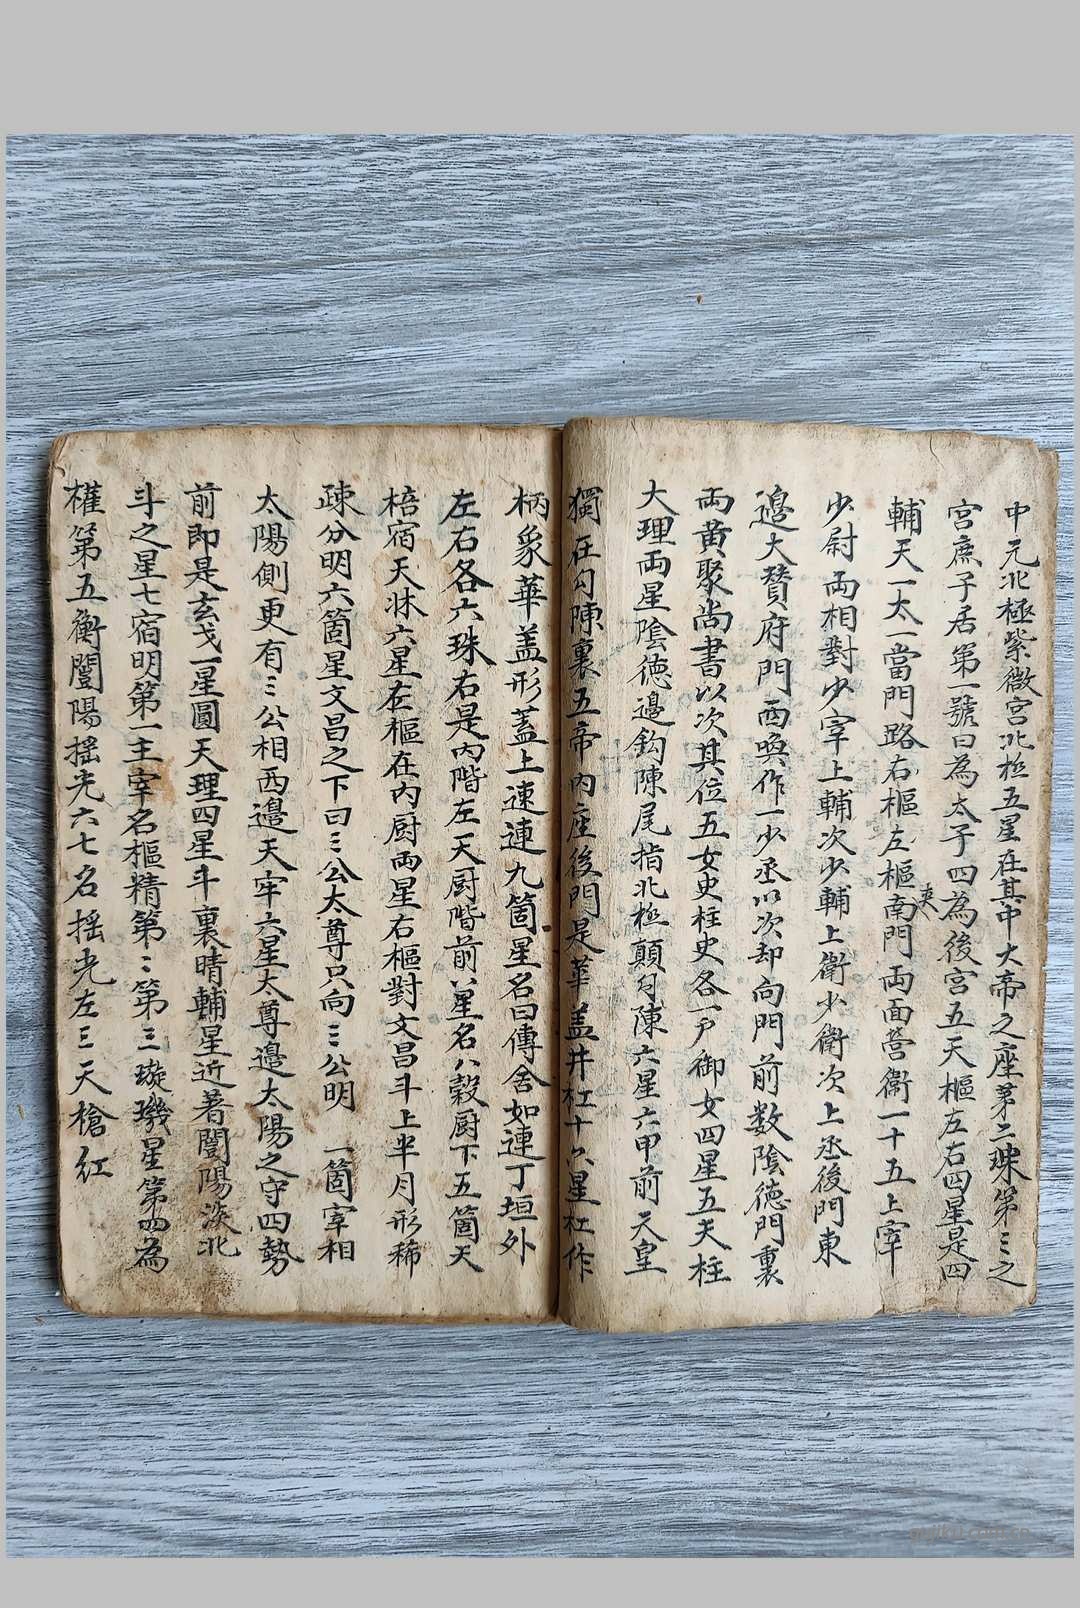 中元北極紫微宮北極五星在其中大帝之座第二珠第三之
宮庶子居第一號曰為太子四為後宮五天樞左右四星是四
輔天一太一當門路右樞左樞夾南門両面營衛一十五上宰
少尉両相對少宰上輔次少輔上衛少衛次上丞後門東
邉大賛府門西喚作一少丞以次却向門前数陰徳門裏
両黄聚尚書以次其位五女史柱史各一戸御女四星五天柱
大理両星陰徳邉鈎陳尾指北極顛勾陳六星六甲前天皇
獨在勾陳裏五帝内座後門是華盖并杠十六星杠作
柄象華盖形蓋上連連九箇星名曰傳舍如連丁垣外
左右各六珠右是内階左天厨階前八星名八穀厨下五箇天
棓宿天牀六星在樞在内厨両星右樞對文昌斗上半月形稀
疎分明六箇星文昌之下曰三公太尊只向三公明 一箇宰相
太陽側更有三公相西邉天牢六星太尊邉太陽之守四勢
前即是玄戈一星圓天理四星斗裏晴輔星近著闓陽淡北
斗之星七宿明第一主宰名樞精第二第三璇璣星第四為
權第五衡闓陽揺光六七名揺光左三天槍紅